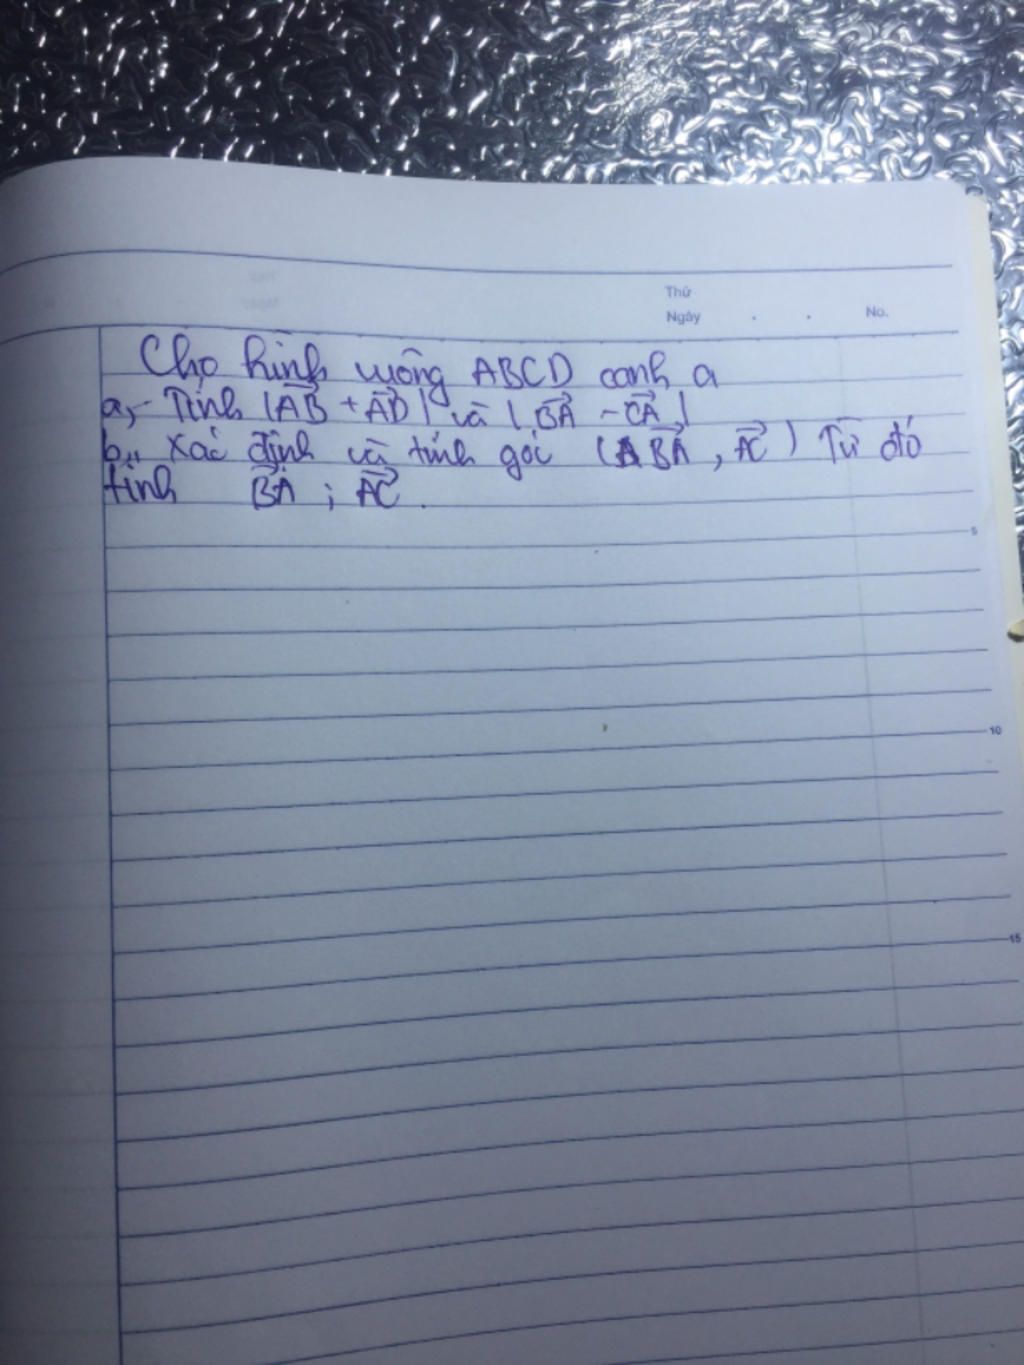 Thứ
Ngày . . No.
Cho hình vuông ABCD cạnh a
a, Tính |AB + AD| và |BA - CA|
b, Xác định và tính góc (BA, AC) Từ đó
tính BA ; AC.
5
10
15